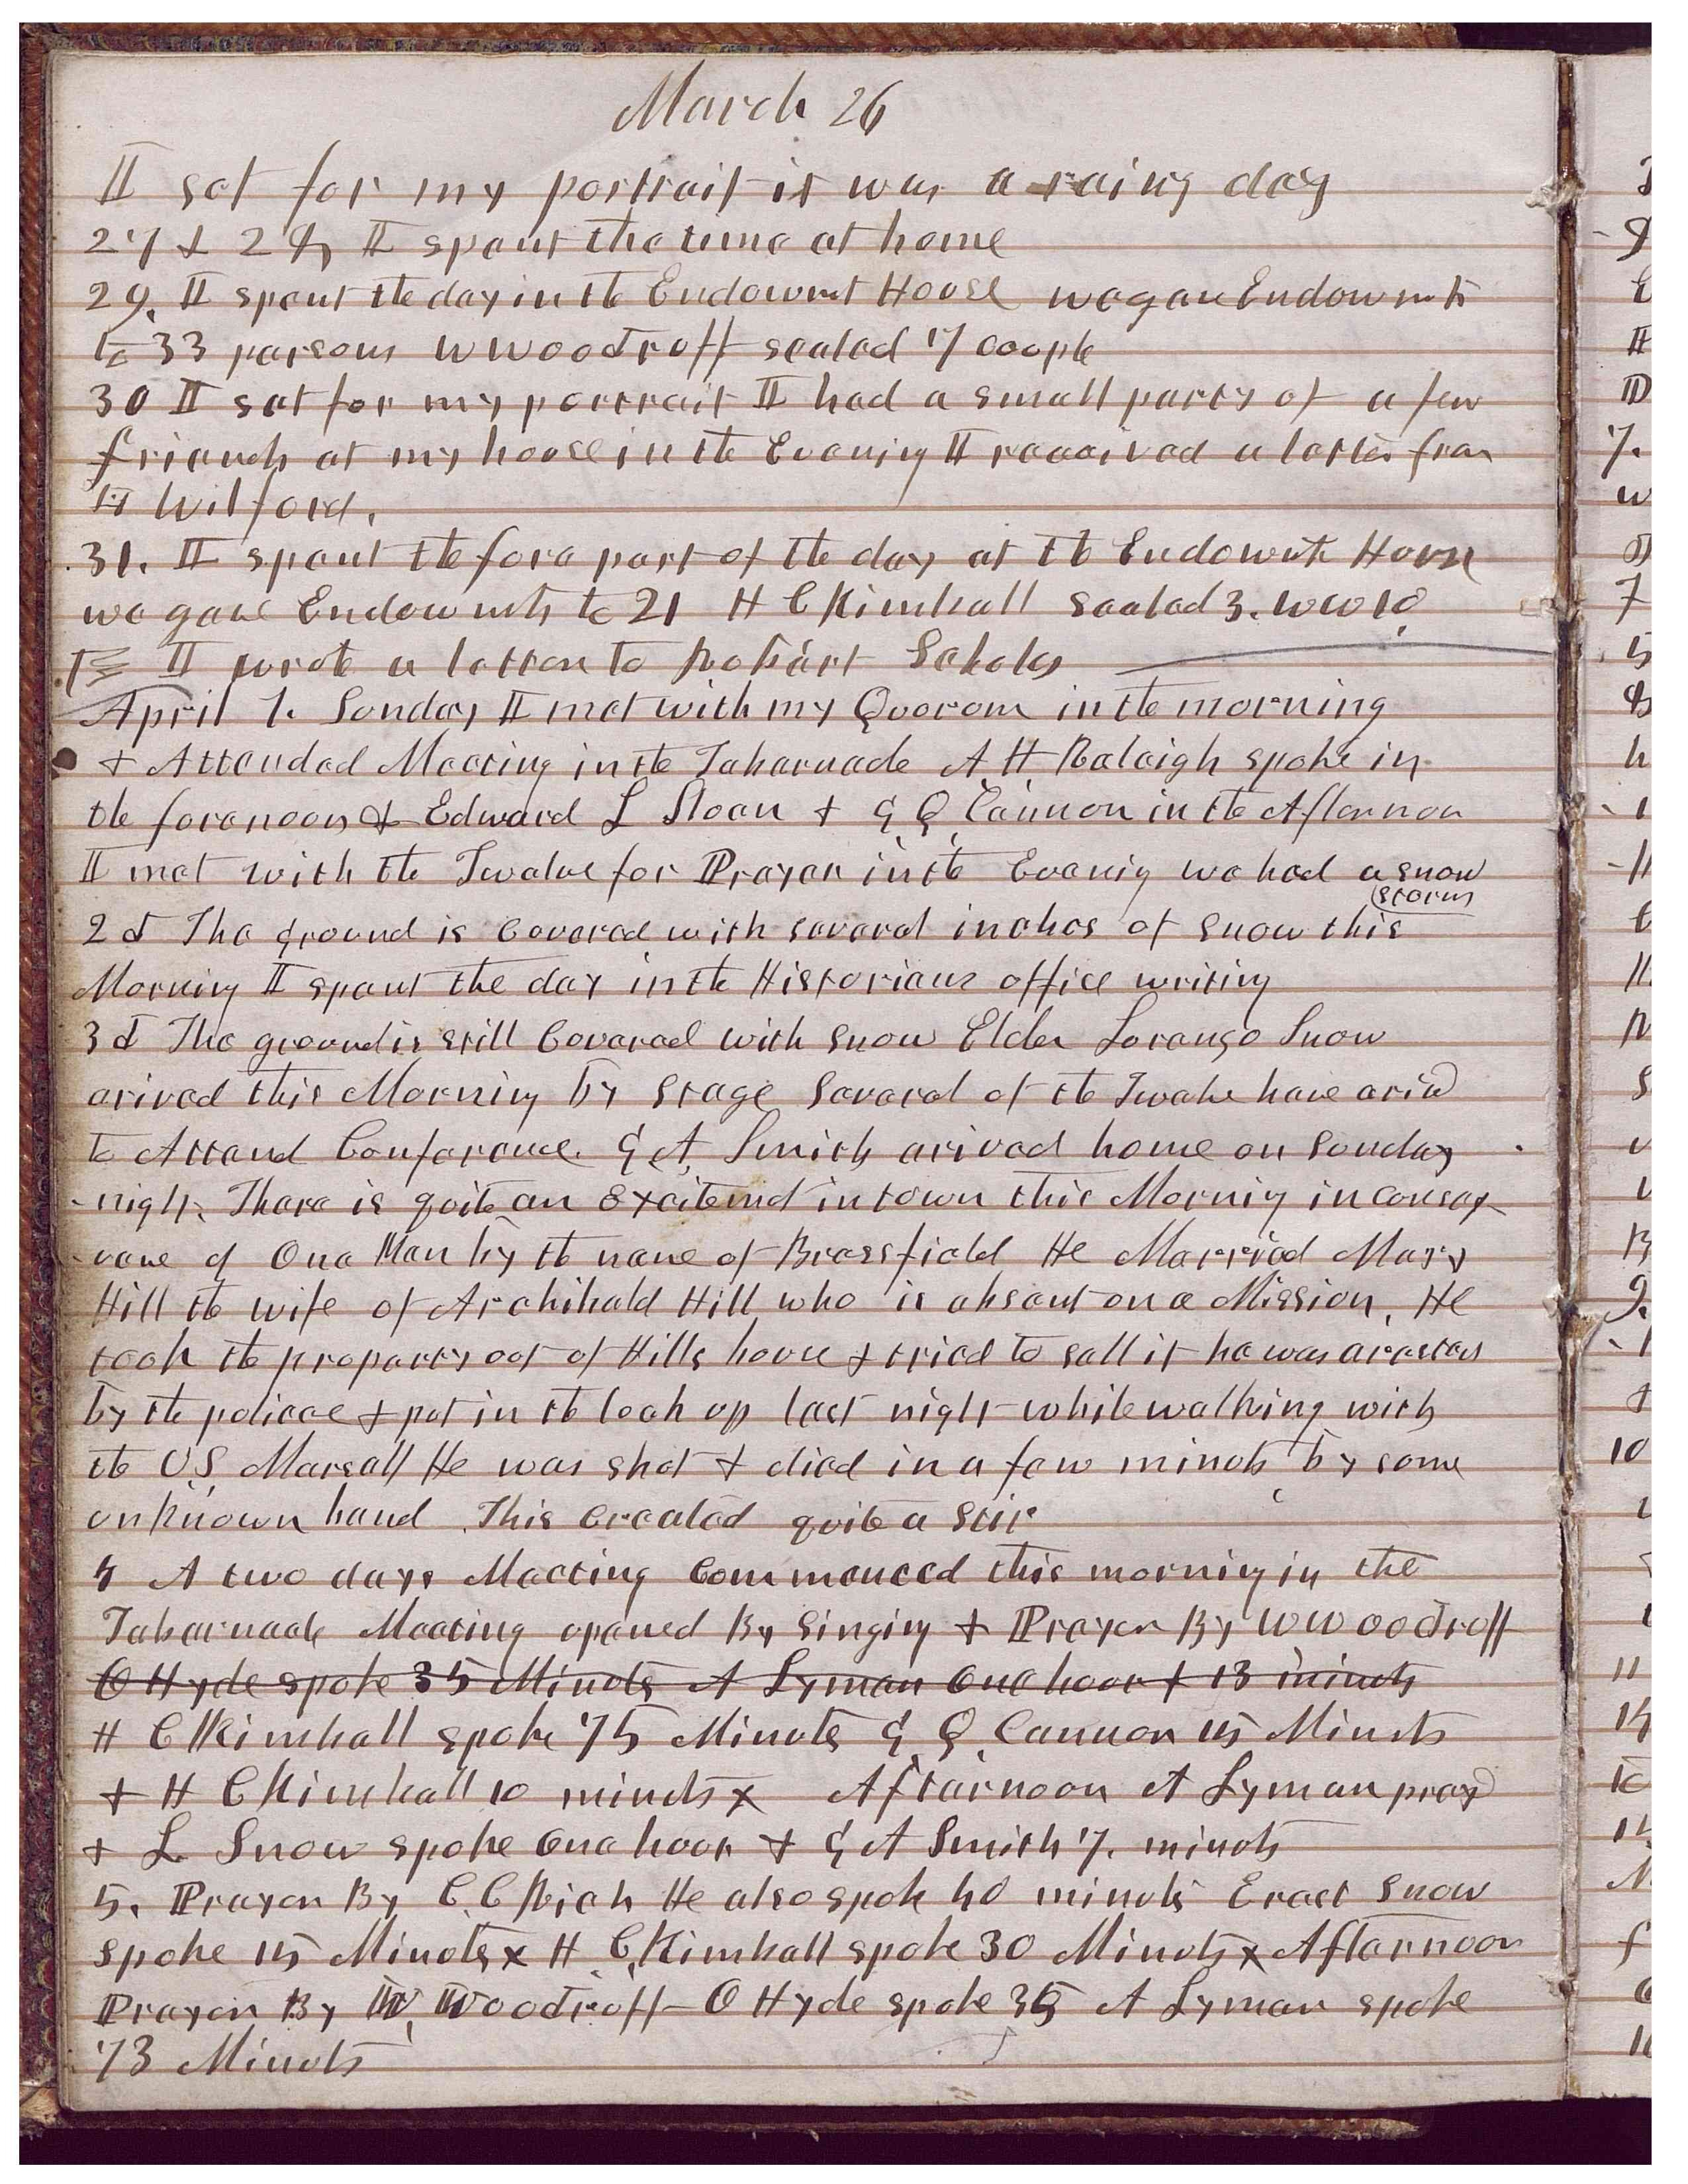 March 26
I sat for my portrait it was a rainy day
27 & 28 I spent the time at home
29. I spent the day in the Endowmt House we gave Endowmts
to 33 persons W Woodruff sealed 17 couple
30 I sat for my portrait I had a small party of a few
friends at my house in the Evening I recceived a letter from
Wilford.
31. I spent the fore part of the day at the Endowmt House
we gave Endowmts to 21 H C Kimball sealed 3. WW 10
I wrote a letter to Robert Scholes
April 1. Sunday I met with my Quorum in the morning
& Attended Meeting in the Tabernacle A. H. Raleigh spoke in
the forenoon & Edward L Sloan & G. Q. Cannon in the Afternoon
I met with the Twelve for Prayer in the Evenig we had a snow
(storm
2d The ground is Covered with several inches of snow this
Morning I spent the day in the Historians office writing
3d The ground is still Covered with snow Elder Lorenzo Snow
arived this Morning by stage Several of the Twelve have arivd
to Attend Conference. G. A. Smith arived home on Sunday
night. There is quite an Excitemet in town this Mornig in conseq-
uence of One Man by the name of Brassfield He Married Mary
Hill the wife of Archibald Hill who is absent on a Mission. He
took the property out of Hills house & tried to sell it he was arested
by the policce & put in the lock up last night while walking with
the U.S. Marsall He was shot & died in a few minuts by some
unknown hand. This created quite a stir
4 A two days Meeting Commenced this mornig in the
Tabernacle Meeting opened By Singing & Prayer By W Woodruff
O Hyde spoke 35 Minuts A Lyman One hour & 13 minuts
H C Kimball spoke 75 Minutes G. Q. Cannon 15 Minuts
& H C Kimball 10 minuts x Afternoon A Lyman prayd
& L Snow spoke One hour & G A Smith 7. minuts
5. Prayer By C. C. Rich He also spoke 40 minuts Erast Snow
spoke 15 Minutes x H. C. Kimball spoke 30 Minuts x Afternoon
Prayer By W. Woodruff - O Hyde spoke 35 A Lyman spoke
73 Minuts